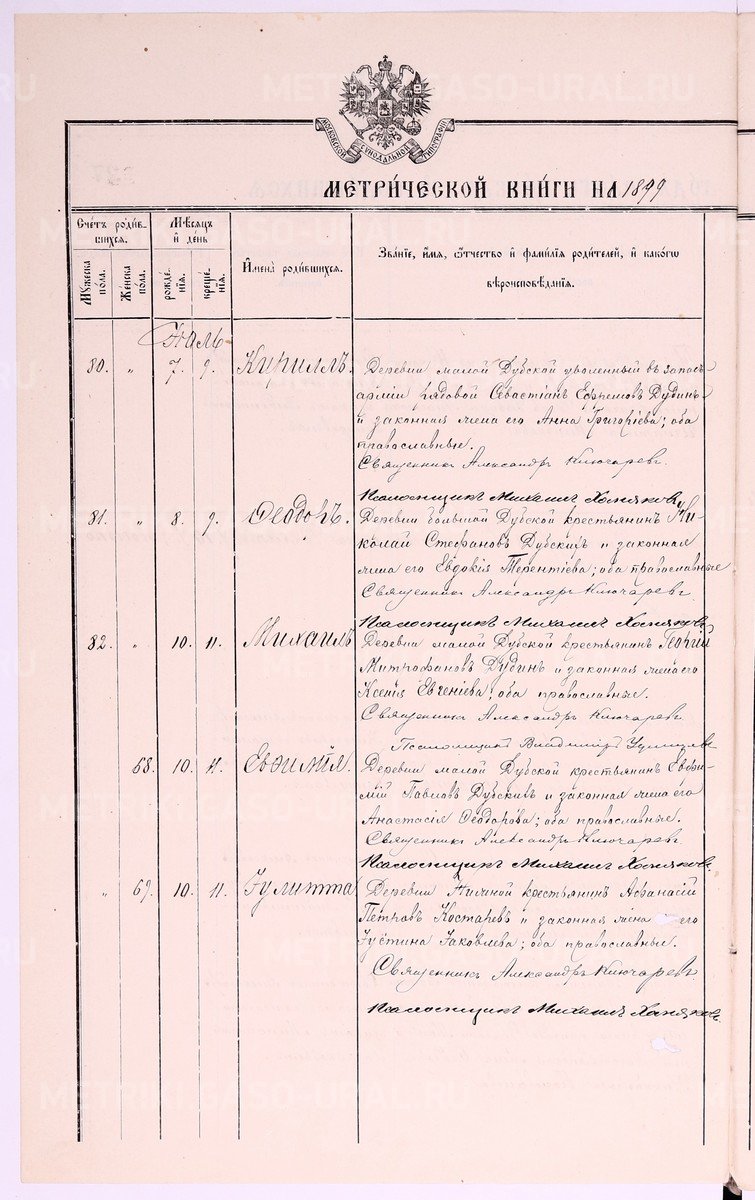 METRIKI.GASO-URAL.RU
МОСКОВСКОЙ СѴНОДАЛЬНОЙ ТИПОГРАФІИ
МЕТРИ́ЧЕСКОЙ КНИ́ГИ НА 1899
Сче́тъ роди́в-
шихся.
Мѣ́сяцъ
и҆ де́нь
И҆мена̀ роди́вшихся.
Зва́нїе, и҆́мя, ѻ҆́тчество и҆ фами́лїя роди́телей, и҆ како́гѡ
вѣроисповѣ́данїя.
Мꙋ́жеска
по́ла.
Же́нска
по́ла.
рожде́-
нїя.
креще́-
нїя.
Іюль
80. " 7. 9. Кириллъ. Деревни малой Дубской уволенный въ запасъ
арміи рядовой Севастіанъ Ефремовъ Дубинъ
и законная жена его Анна Григоріева; оба
православные.
Священникъ Александръ Ключаревъ.
Псаломщикъ Михаилъ Хомяковъ
81. " 8. 9. Ѳеодоръ. Деревни большой Дубской крестьянинъ Ни-
колай Стефановъ Дубскихъ и законная
жена его Евдокія Терентіева; оба православные
Священникъ Александръ Ключаревъ
Псаломщикъ Михаилъ Хомяковъ
82. " 10. 11. Михаилъ Деревни малой Дубской крестьянинъ Георгій
Митрофановъ Дубинъ и законная жена его
Ксенія Евгеніева; оба православные.
Священникъ Александръ Ключаревъ
Псаломщикъ Владиміръ
68. 10. 11. Евѳимія. Деревни малой Дубской крестьянинъ Евѳи-
мій Павловъ Дубскихъ и законная жена его
Анастасія Ѳеодорова; оба православные.
Священникъ Александръ Ключаревъ
Псаломщикъ Михаилъ Хомяковъ.
" 69. 10. 11. Іулитта Деревни крестьянинъ Аѳанасій
Петровъ Костаревъ и законная жена его
Іустина Іаковлева; оба православные.
Священникъ Александръ Ключаревъ
Псаломщикъ Михаилъ Хомяковъ.
METRIKI.GASO-URAL.RU